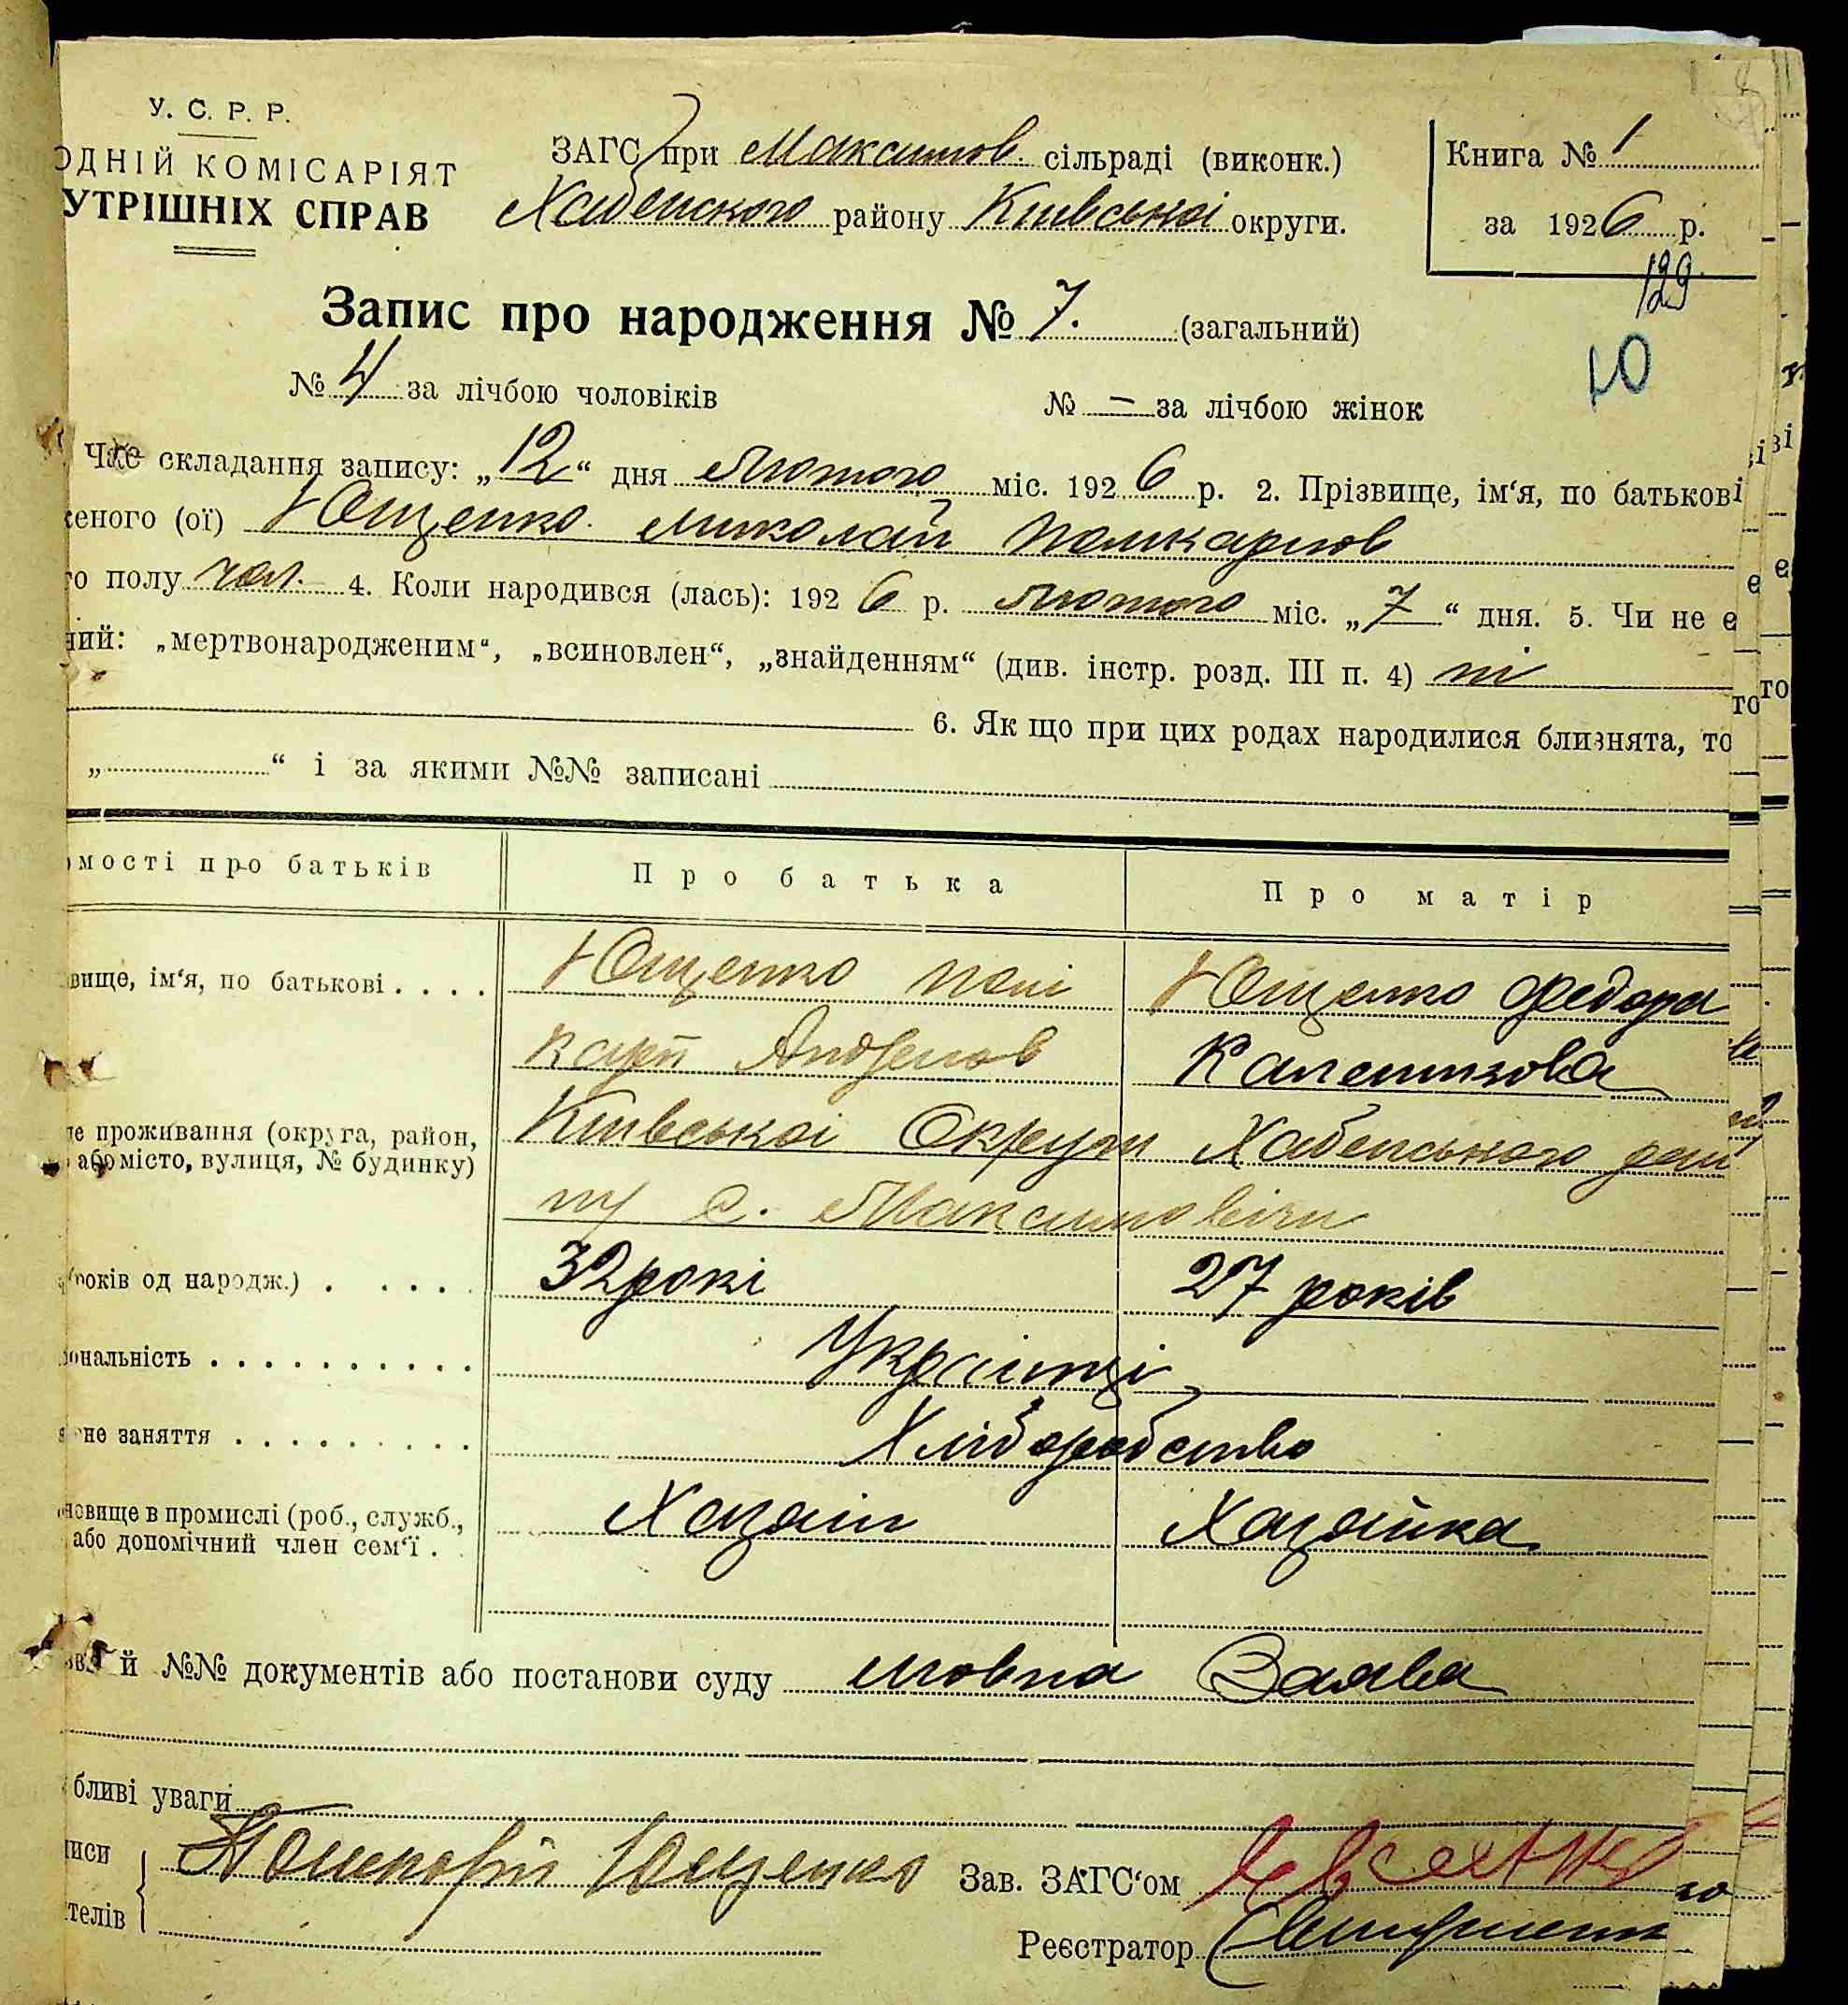 У. С. Р. Р.
ОДНІЙ КОМІСАРІЯТ
УТРІШНІХ СПРАВ
ЗАГС при Максимов. сільраді (виконк.)
Хабенского району Київської округи.
Книга № 1
за 1926 р.
129
Запис про народження № 7. (загальний)
10
№ 4 за лічбою чоловіків № — за лічбою жінок
Час складання запису: „12“ дня Лютого міс. 1926 р. 2. Прізвище, ім‘я, по батькові
женого (ої) Ющенко Миколай Поликарпов
го полу чол. 4. Коли народився (лась): 1926 р. Лютого міс. „7“ дня. 5. Чи не є
ний: „мертвонародженим“, „всиновлен“, „знайденням“ (див. інстр. розд. III п. 4) ні
6. Як що при цих родах народилися близнята, то
„ “ і за якими №№ записані
омості про батьків Про батька Про матір
вище, ім‘я, по батькові . . . . Ющенко Полі Ющенко Федора
карп Андреов
де проживання (округа, район, Київської Округи Хабенського рай
або місто, вулиця, № будинку)
ну с. Максимовічи
(років од народж.) . . . . . 32 рокі 27 років
ональність . . . . . . . . . . Українці
не заняття . . . . . . . . . Хліборобство
новище в промислі (роб., служб., Хазаін Хазяйка
або допомічний член сем‘ї . .
й №№ документів або постанови суду мовна Заява
бливі уваги
иси Ющенко Зав. ЗАГС‘ом
телів Реєстратор